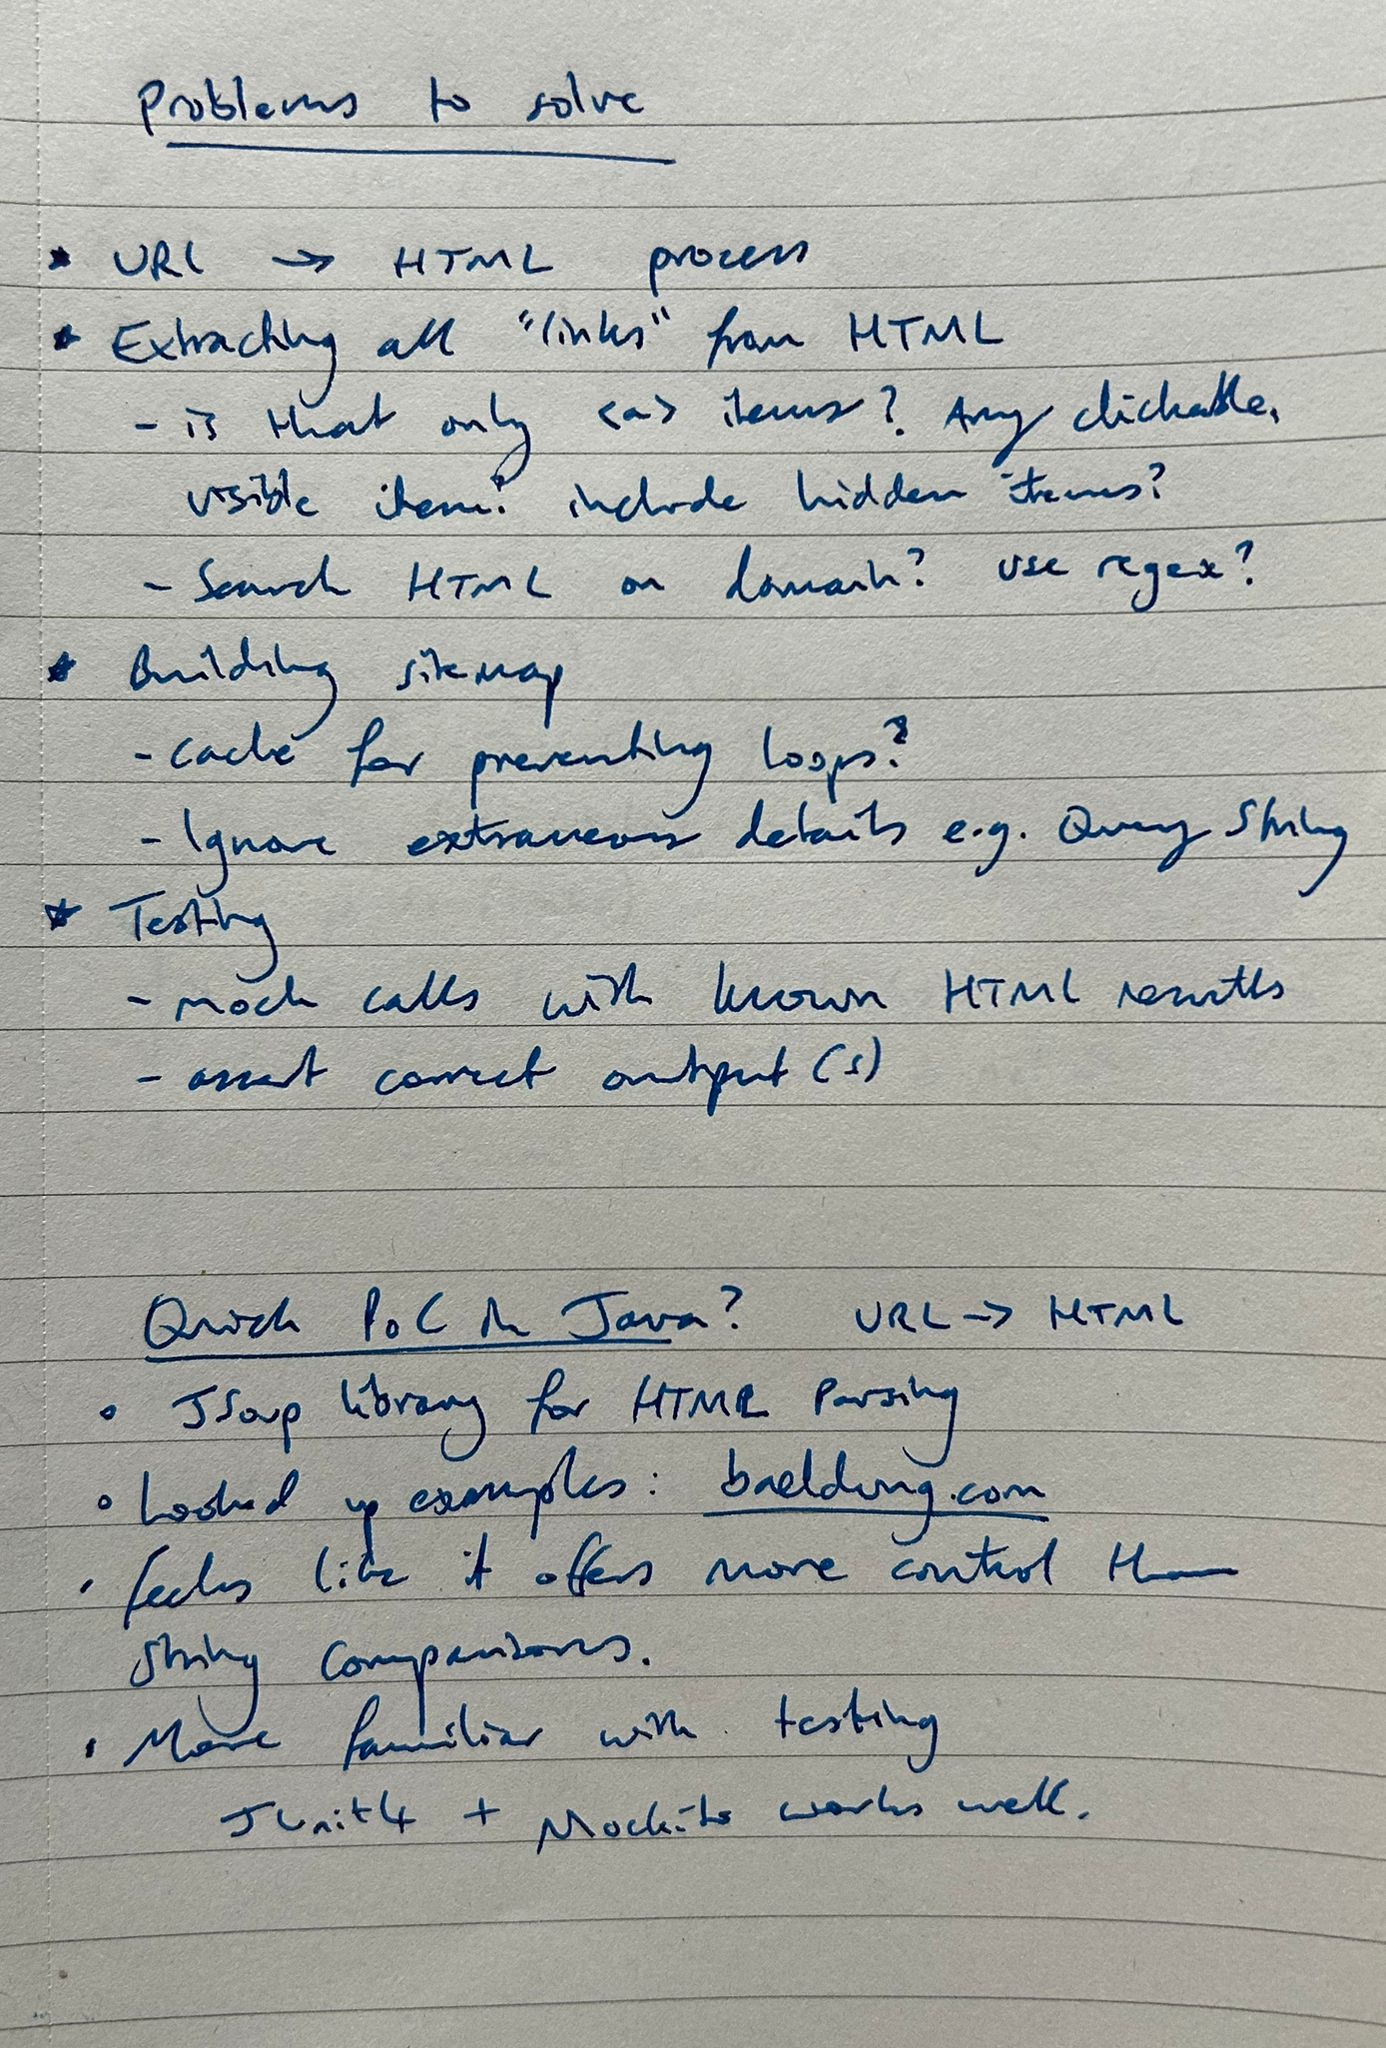 Problems to solve
* URL → HTML process
* Extracting all "links" from HTML
- is that only <a> items? Any clickable,
visible item? include hidden items?
- Search HTML on domain? use regex?
* Building sitemap
- cache for preventing loops?
- Ignore extraneous details e.g. Query String
* Testing
- mock calls with known HTML results
- assert correct output(s)
Quick PoC in Java? URL → HTML
• JSoup library for HTML Parsing
• Looked up examples: baeldung.com
• feels like it offers more control than
String comparisons.
• More familiar with testing
JUnit4 + Mockito works well.